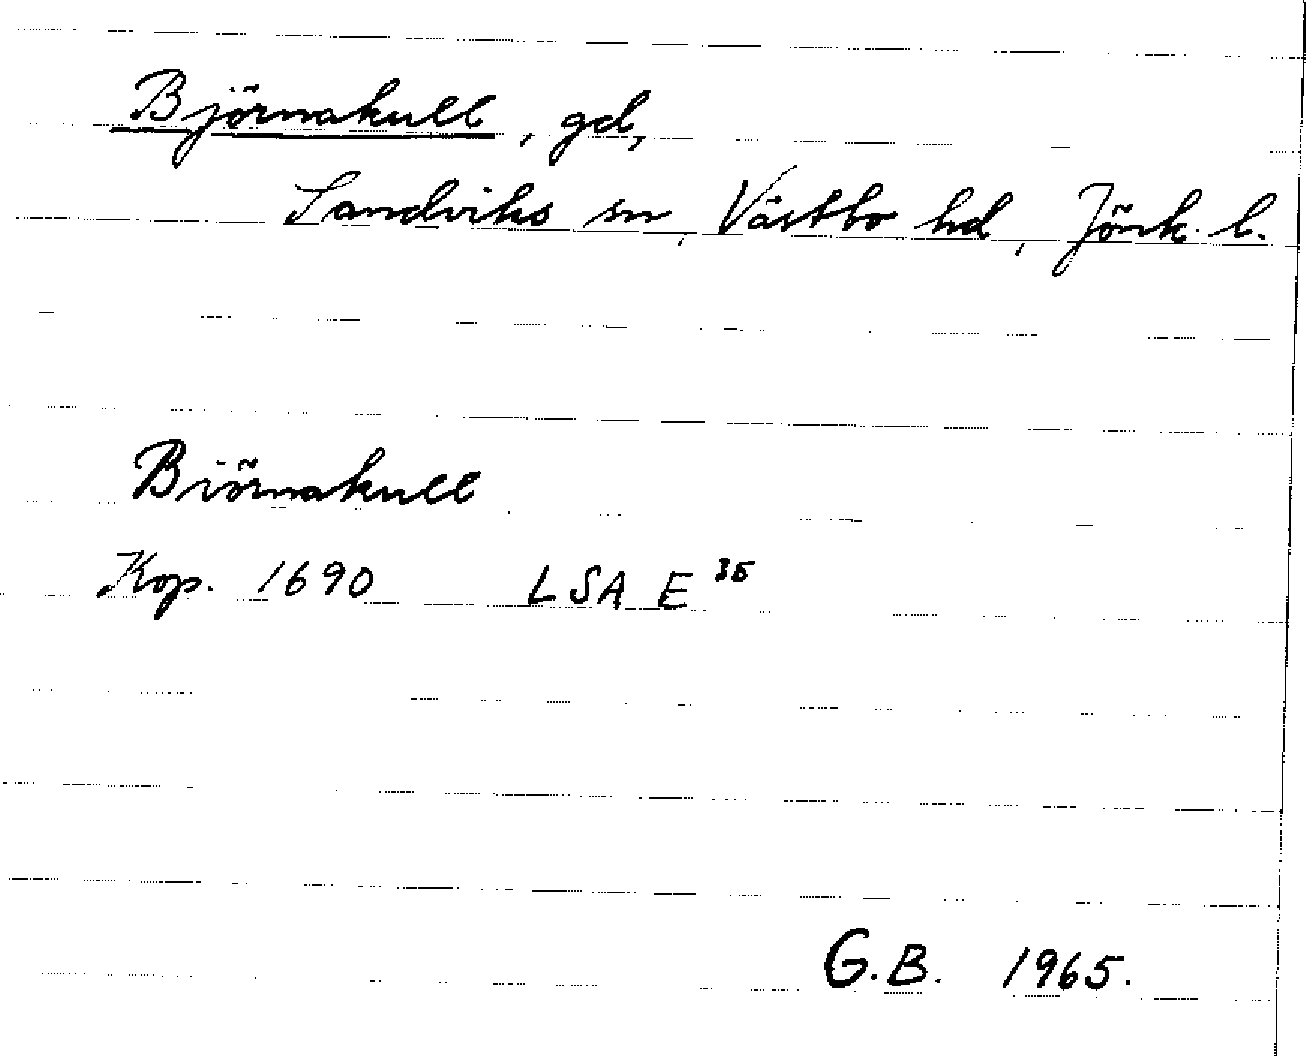 Björnakull, gd,
Sandviks sn, Västbo hd, Jönk. l.
Biörnakull
Kop. 1690 LSA E 35
G.B. 1965.